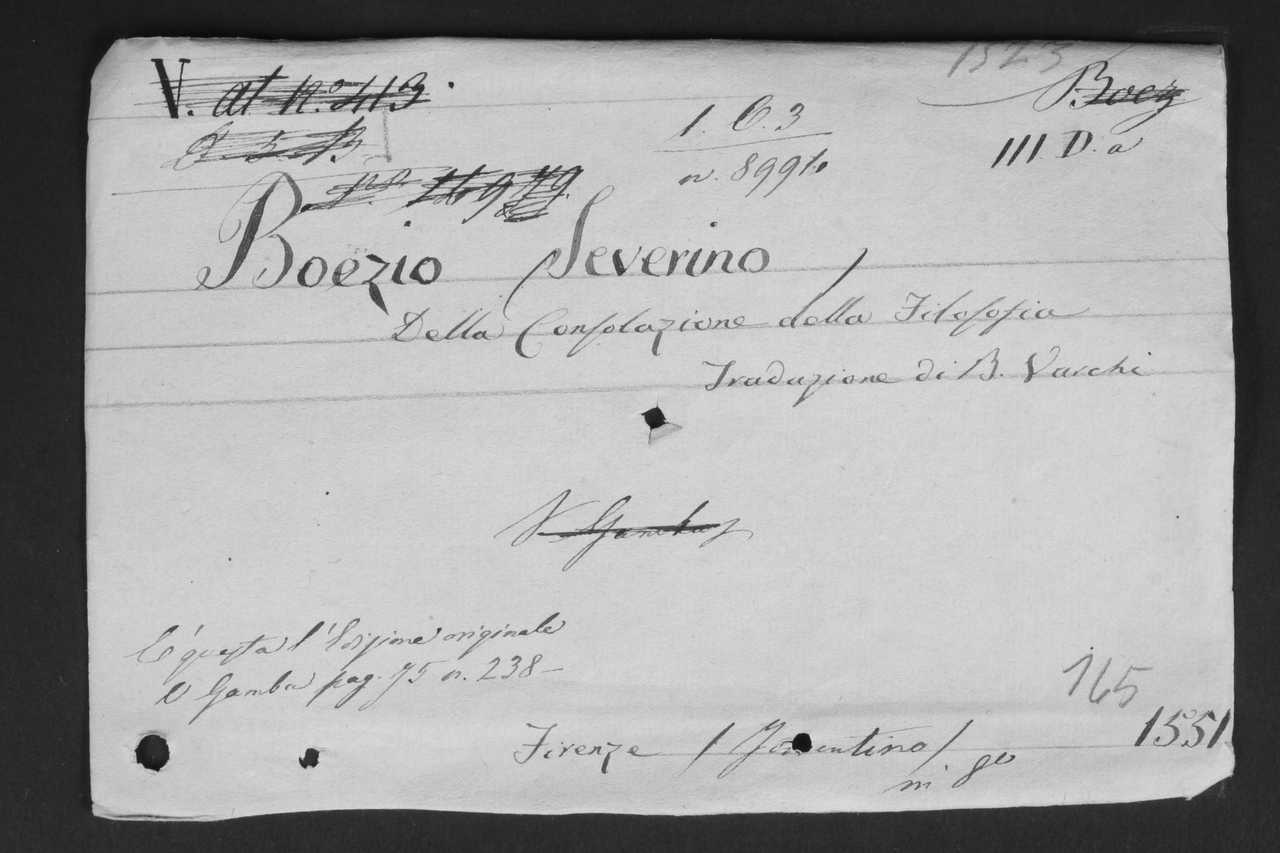 1523
V. at n.º 413.
Boez
1. C. 3
III. D. a
n. 8991
Boezio Severino /
Della Consolazione della Filosofia
Traduzione di B. Varchi
V Gamba
E' questa l'Edizione originale
V Gamba pag. 75 n. 238 —
165
1551
Firenze / Torrentino /
in 8º